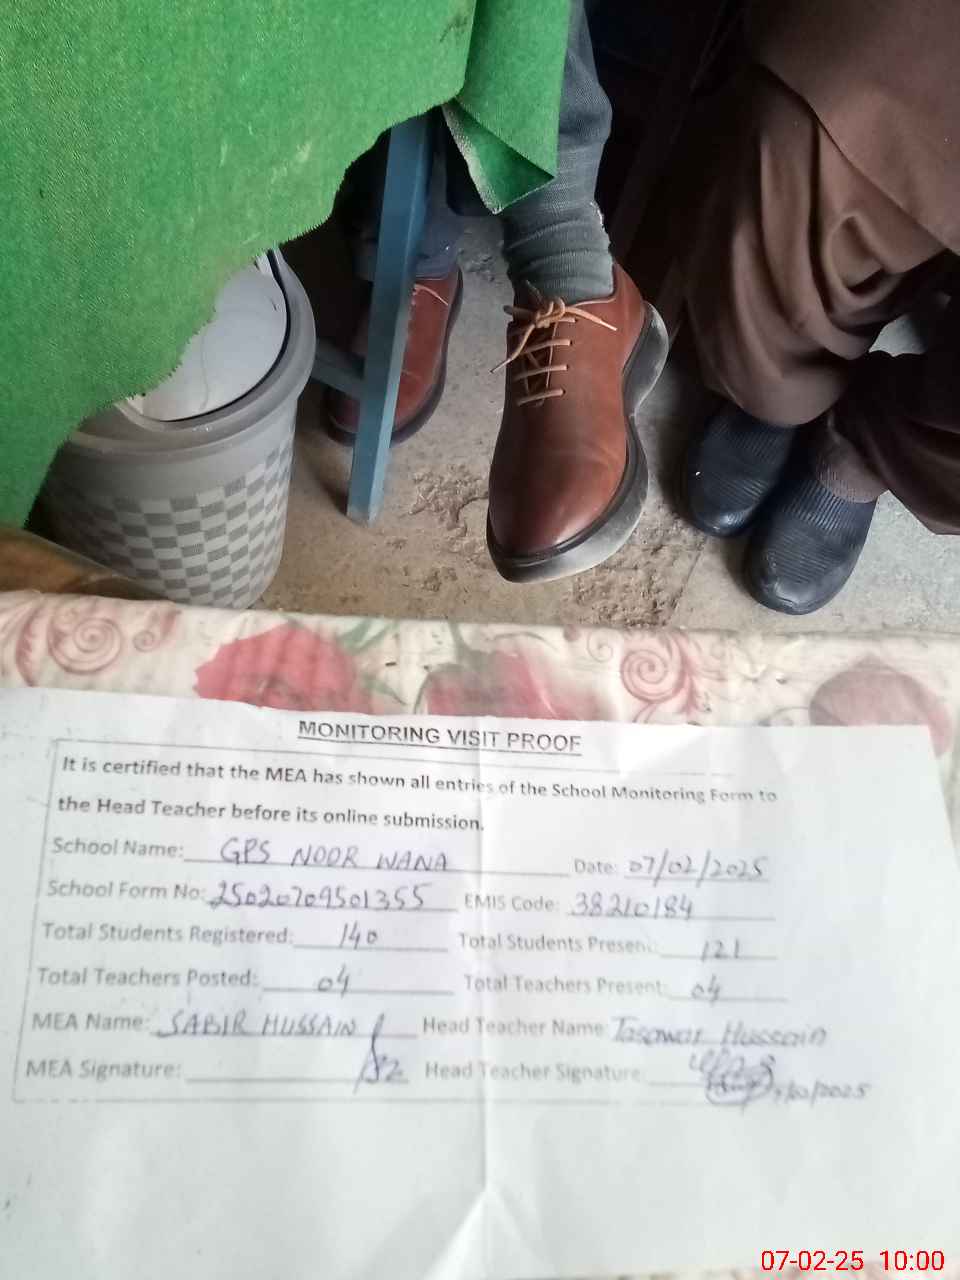 MONITORING VISIT PROOF
It is certified that the MEA has shown all entries of the School Monitoring Form to
the Head Teacher before its online submission.
School Name: GPS NOOR WANA Date: 07/02/2025
School Form No: 25020709501355 EMIS Code: 38210184
Total Students Registered: 140 Total Students Present: 121
Total Teachers Posted: 04 Total Teachers Present: 04
MEA Name: SABIR HUSSAIN Head Teacher Name: Tasawar Hussain
MEA Signature: Head Teacher Signature:
07-02-25 10:00